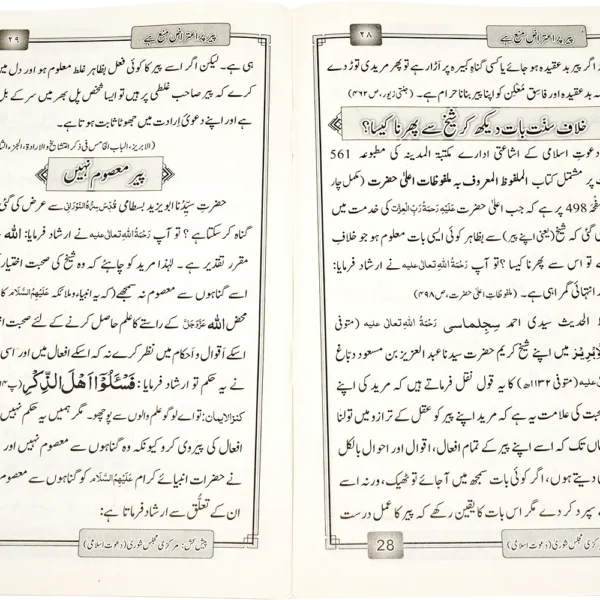 ۲۸
پیر پر اعتراض منع ہے
اگر پیر بد عقیدہ ہو جائے یا کسی گناہِ کبیرہ پر اَڑا رہے تو پھر مریدی توڑ دے
کہ بد عقیدہ اور فاسق مُعلِن کو اپنا پیر بنانا حرام ہے۔ (جنتی زیور، ص۴۶۲)
خلافِ سنّت بات دیکھ کر شیخ سے پھرنا کیسا؟
دعوتِ اسلامی کے اشاعتی ادارے مکتبۃ المدینہ کی مطبوعہ 561
پر مشتمل کتاب الملفوظ المعروف بہ ملفوظاتِ اعلیٰ حضرت (مکمل چار
498 پر ہے کہ جب اعلیٰ حضرت عَلَیْہِ رَحْمَۃُ رَبِّ الْعِزَّت کی خدمت میں
گئی کہ شیخ (یعنی اپنے پیر) سے بظاہر کوئی ایسی بات معلوم ہو جو خلافِ
ہے تو اس سے پھرنا کیسا؟ تو آپ رَحْمَۃُ اللہِ تعالٰی علیہ نے ارشاد فرمایا:
اور انتہائی گمراہی ہے۔ (ملفوظاتِ اعلیٰ حضرت، ص۴۹۸)
الحدیث سیدی احمد سِجِلماسی رَحْمَۃُ اللہِ تعالٰی علیہ (متوفی
میں اپنے شیخِ کریم حضرت سیدنا عبد العزیز بن مسعود دبّاغ
علیہ (متوفی ۱۱۳۲ھ) کا یہ قول نقل فرماتے ہیں کہ مرید کی اپنے
محبت کی علامت یہ ہے کہ مرید اپنے پیر کو عقل کے ترازو میں تولنا
یہاں تک کہ اسے اپنے پیر کے تمام افعال، اقوال اور احوال بالکل
دکھائی دیتے ہوں، اگر کوئی بات سمجھ میں آجائے تو ٹھیک، ورنہ اسے
کے سپرد کر دے مگر اس بات کا یقین رکھے کہ پیر کا عمل درست
28
مرکزی مجلس شوریٰ (دعوتِ اسلامی)
پیر پر اعتراض منع ہے
۲۹
ہی ہے۔ لیکن اگر اسے پیر کا کوئی فعل بظاہر غلط معلوم ہو اور دل میں
کرے کہ پیر صاحب غلطی پر ہیں تو ایسا شخص پل بھر میں سر کے بل
ہے اور اپنے دعویٰ اِرادت میں جھوٹا ثابت ہوتا ہے۔
پیر معصوم نہیں
حضرتِ سیِّدُنا ابو یزید بسطامی قُدِّسَ سِرُّہُ النُّوْرَانِی سے عرض کی گئی
گناہ کر سکتا ہے؟ تو آپ رَحْمَۃُ اللہِ تعالٰی علیہ نے ارشاد فرمایا: اللہ
مقرر تقدیر ہے۔ لہٰذا مرید کو چاہئے کہ وہ شیخ کی صحبت اختیار
اسے گناہوں سے معصوم نہ سمجھے (کہ یہ انبیاء و ملائکہ عَلَیْہِمُ السَّلَام کا
محض اللہ عَزَّوَجَلَّ کے راستے کا علم حاصل کرنے کے لئے صحبت
اسکے اَقوال و اَحکام میں نظر کرے نہ کہ اسکے افعال میں اور اسی
نے یہ حکم تو ارشاد فرمایا: فَسْـَٔلُوْۤا اَهْلَ الذِّكْرِ (پ
کنزالایمان: تو اے لوگو علم والوں سے پوچھو۔ مگر ہمیں یہ حکم نہیں
افعال کی پیروی کرو کیونکہ وہ گناہوں سے معصوم نہیں اور
نے حضرات انبیائے کرام عَلَیْہِمُ السَّلَام کو گناہوں سے معصوم
ان کے تعلُّق سے ارشاد فرماتا ہے:
پیش کش: مرکزی مجلسِ شوریٰ (دعوتِ اسلامی)